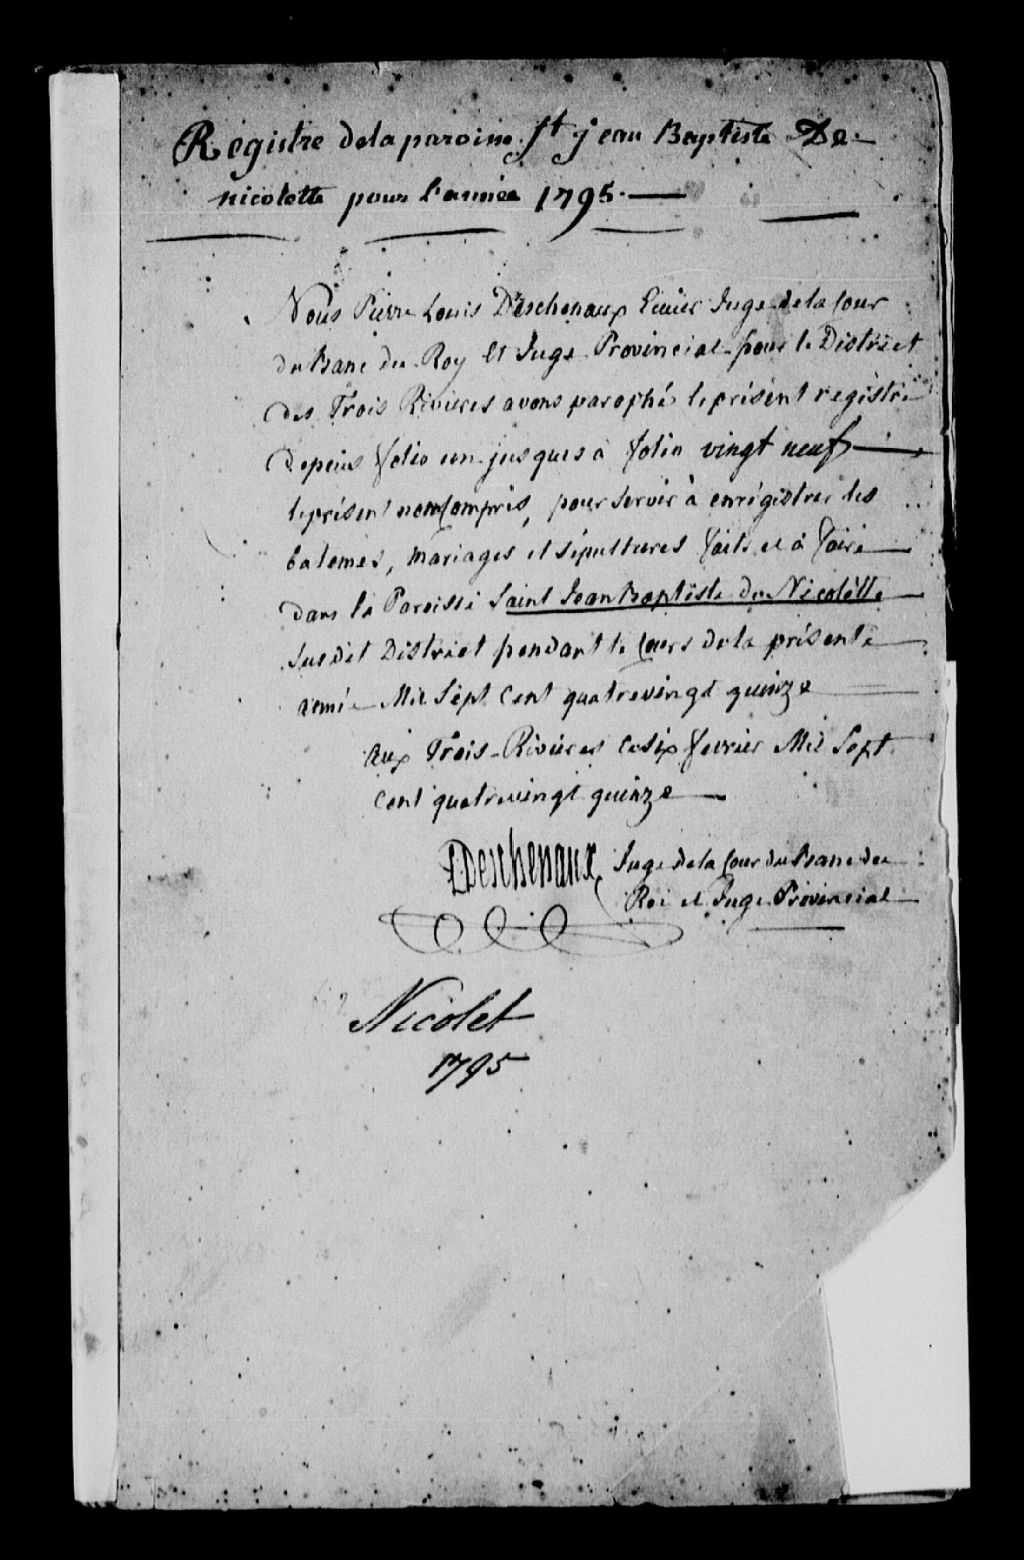 Registre dela paroisse St jean Baptiste De
nicolette pour l'année 1795.
Nous Pierre Louis Deschenaux Ecuier Juge dela Cour
du Banc du Roy Et Juge Provincial pour le District
des Trois Rivieres avons parophé le présent régistre
depuis folio un jusques à folio vingt neuf
le présent non Compris, pour servir à enrégistrer les
batemes, mariages et sépultures faits et à faire
dans la Paroisse Saint Jean Baptiste de Nicolette
susdit District pendant le Cours de la présente
année Mil Sept Cent quatrevingt quinze
Aux Trois-Rivieres ce six fevrier Mil Sept
Cent quatrevingt quinze
PLDeschenaux Juge dela Cour du Banc du
Roi et Juge Provincial
Nicolet
1795